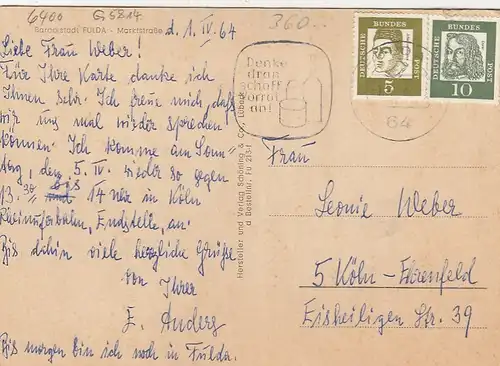 6400 G5814 360.-
Barockstadt FULDA - Marktstraße
d. 1. IV. 64
Liebe Frau Weber!
Für Ihre Karte danke ich
Ihnen sehr. Ich freue mich, daß
wir uns mal wieder sprechen
können. Ich komme am Sonn-
tag, den 5. IV. wieder so gegen
13.30 bis 14 Uhr in Köln
Endstelle, an.
Bis dahin viele herzliche Grüße
von Ihrer
E. Anders
Bis morgen bin ich noch in Fulda.
Hersteller und Verlag Schöning & Co., Lübeck
Bestellnr. Fu
Denke
dran
schaff
Vorrat
an!
64
DEUTSCHE BUNDESPOST
5
DEUTSCHE BUNDESPOST
10
Frau
Leonie Weber
5 Köln-Ehrenfeld
Eisheiligen Str. 39